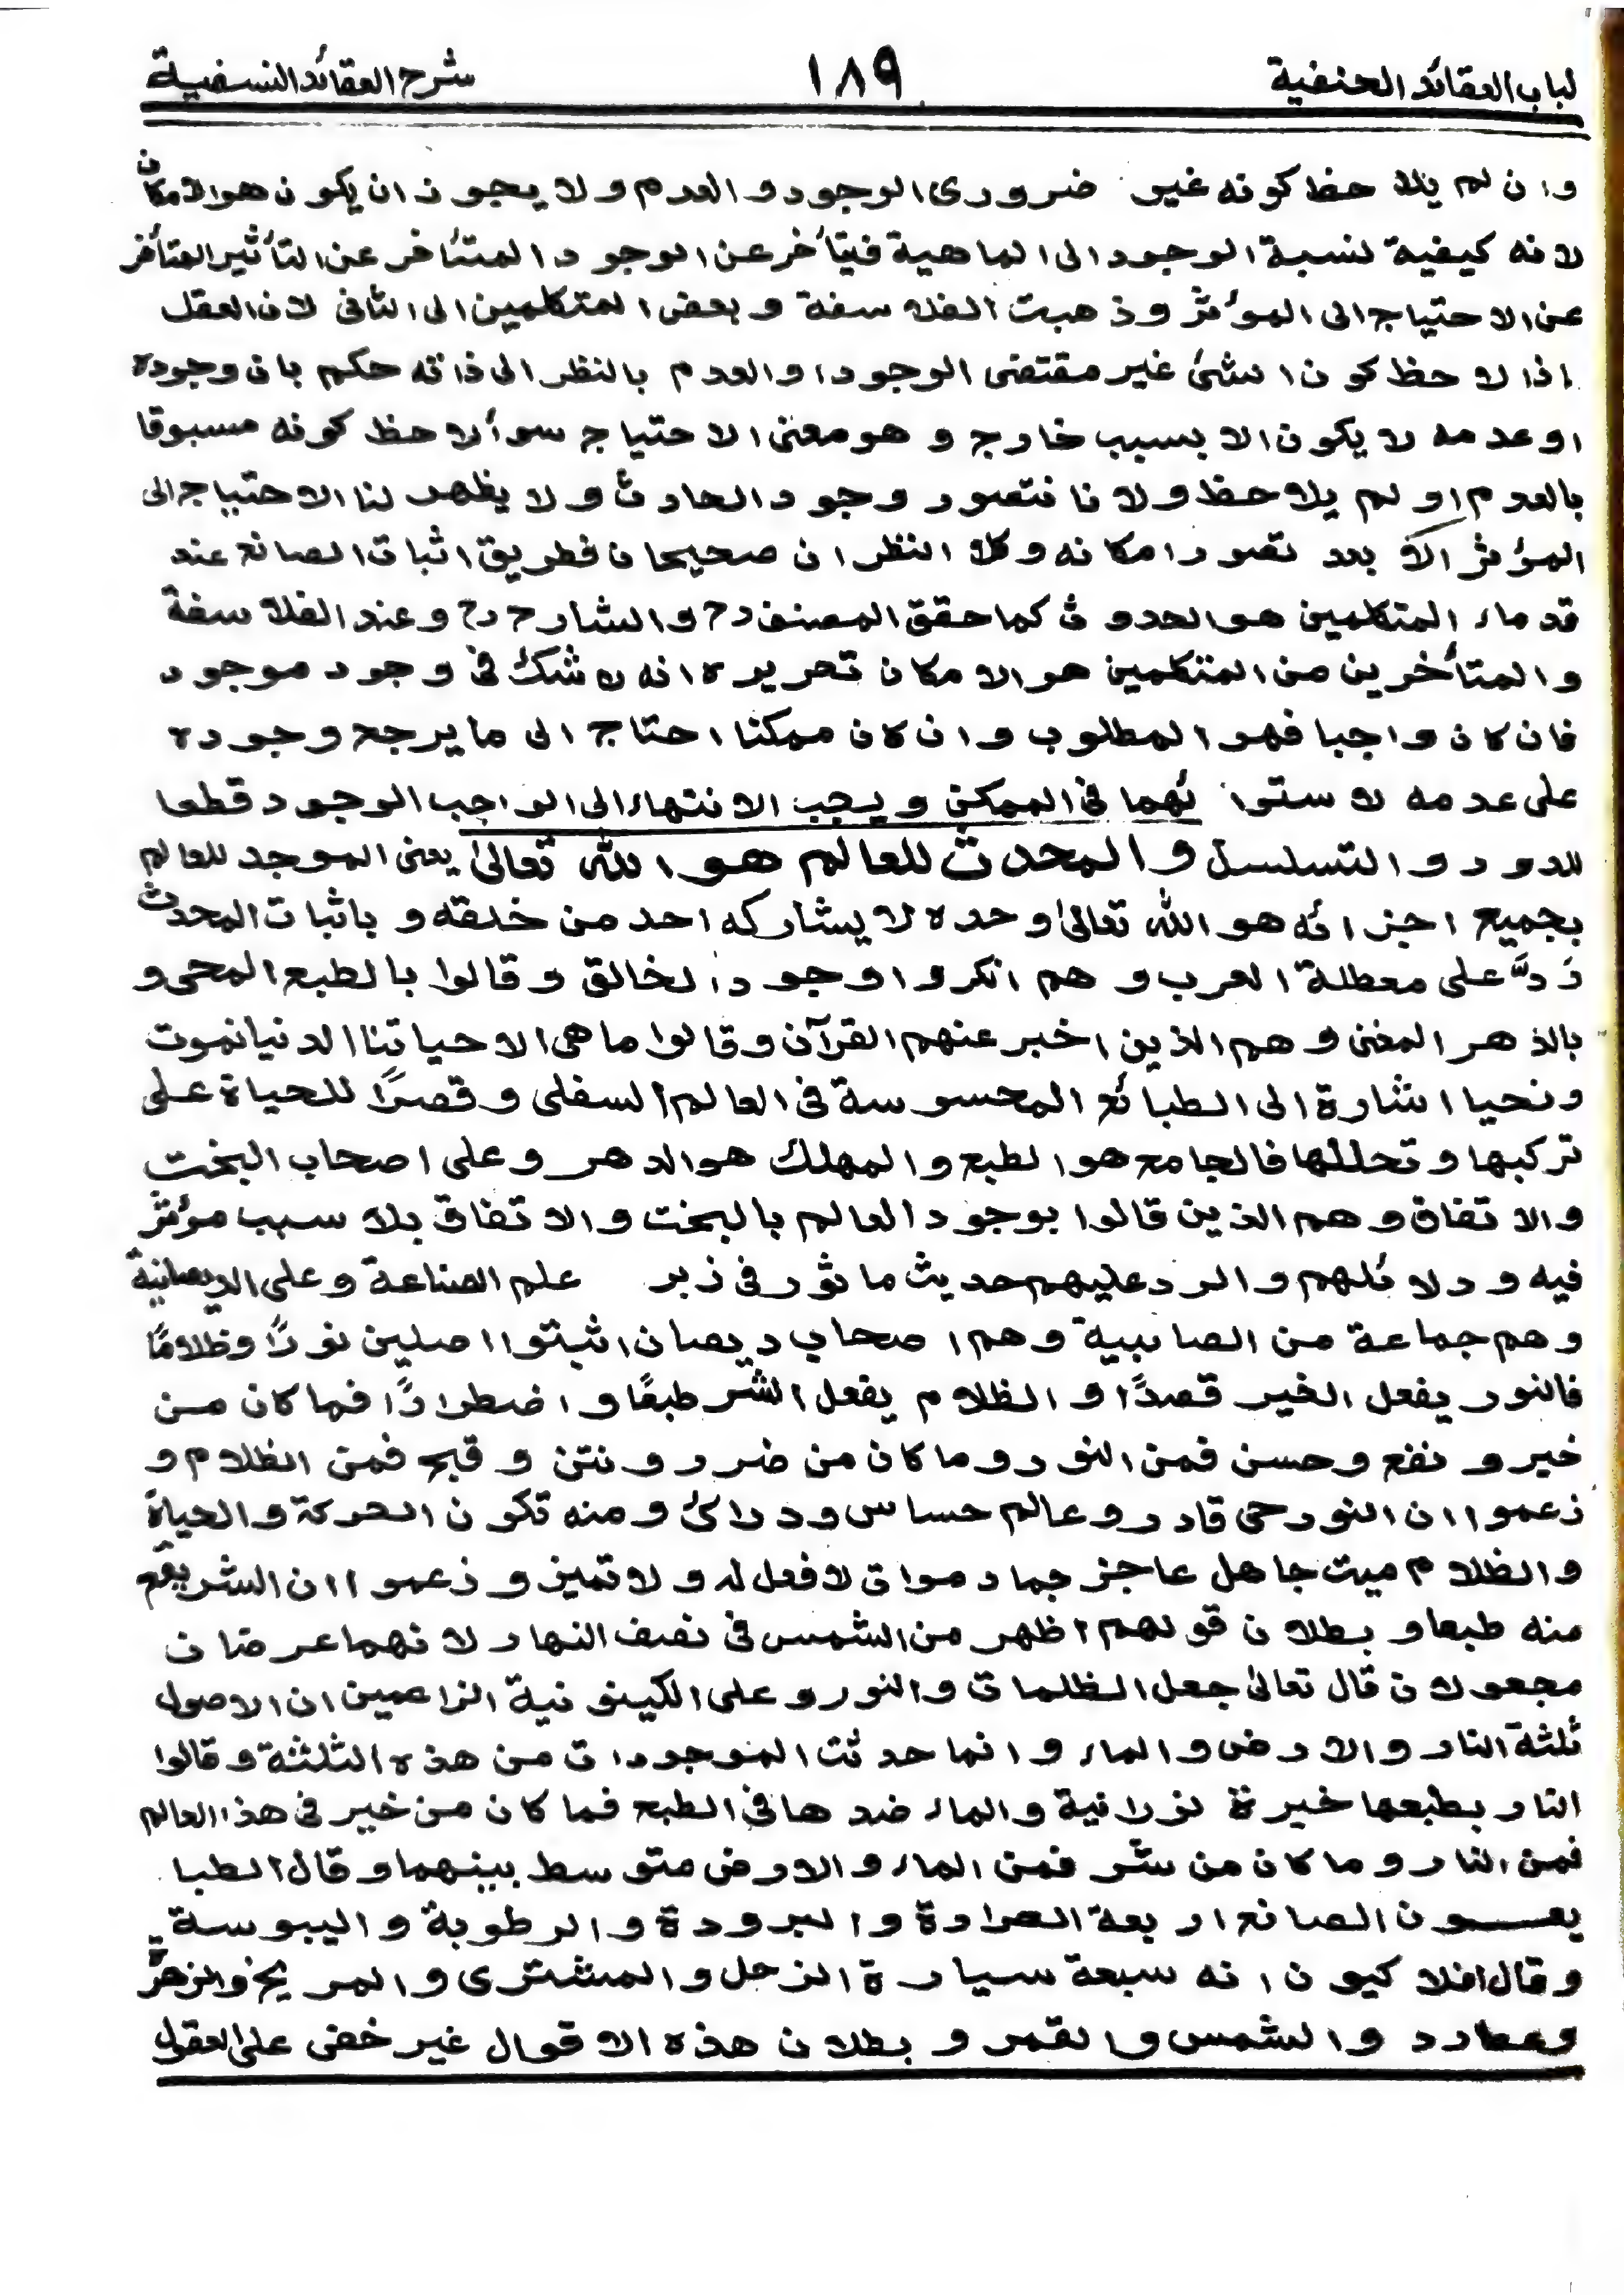 لباب العقائد الحنفية ١٨٩ شرح العقائد النسفية
وان لم يلاحظ كونه غير ضروري الوجود والعدم ولا يجوز ان يكون هو الامكان
لانه كيفية لنسبة الوجود الى الماهية فيتأخر عن الوجود المتأخر عن التأثير المتأخر
عن الاحتياج الى المؤثر وذهبت الفلاسفة وبعض المتكلمين الى الثاني لان العقل
اذا لاحظ كون الشئ غير مقتضى الوجود او العدم بالنظر الى ذاته حكم بان وجوده
او عدمه لا يكون الا بسبب خارج وهو معنى الاحتياج سوأ لاحظ كونه مسبوقا
بالعدم او لم يلاحظ ولانا نتصور وجود الحادث ولا يظهر لنا الاحتياج الى
المؤثر الا بعد تصور امكانه وكلا النظر ان صحيحان فطريق اثبات الصانع عند
قدماء المتكلمين هو الحدوث كما حقق المصنف رح والشارح رح وعند الفلاسفة
والمتأخرين من المتكلمين هو الامكان تحريره انه لا شك في وجود موجود
فان كان واجبا فهو المطلوب وان كان ممكنا احتاج الى ما يرجح وجوده
على عدمه لاستوائهما في الممكن ويجب الانتهاء الى الواجب الوجود قطعا
للدور والتسلسل والمحدث للعالم هو الله تعالىٰ يعنى الموجد للعالم
بجميع اجزائه هو الله تعالىٰ وحده لا يشاركه احد من خلقه وباثبات المحدث
رَدَّ على معطلة العرب وهم انكروا وجود الخالق وقالوا بالطبع المحى و
بالدهر المفنى وهم الذين اخبر عنهم القرآن وقالوا ما هى الا حياتنا الدنيا نموت
ونحيا اشارة الى الطبائع المحسوسة فى العالم السفلى وقصرًا للحياة على
تركبها وتحللها فالجامع هو الطبع والمهلك هو الدهر وعلى اصحاب البخت
والاتفاق وهم الذين قالوا بوجود العالم بالبخت والاتفاق بلا سبب مؤثر
فيه ودلائلهم والرد عليهم حديث ماثور فى زبر علم الصناعة وعلى الديصانية
وهم جماعة من الصابيية وهم اصحاب ديصان اثبتوا اصلين نورًا وظلامًا
فالنور يفعل الخير قصدًا والظلام يفعل الشر طبعًا واضطرارًا فما كان من
خير ونفع وحسن فمن النور وما كان من ضرر ونتن وقبح فمن الظلام و
زعموا ان النور حى قادر وعالم حساس ودراك ومنه تكون الحركة والحياة
والظلام ميت جاهل عاجز جماد موات لا فعل له ولا تميز وزعموا ان الشر يقع
منه طبعا وبطلان قولهم اظهر من الشمس فى نصف النهار لانهما عرضان
مجعولان قال تعالىٰ جعل الظلمات والنور وعلى الكينونية الزاعمين ان الاصول
ثلثة النار والارض والماء وانما حدثت الموجودات من هذه الثلثة وقالوا
النار بطبعها خيرة نورانية والماء ضدها فى الطبع فما كان من خير فى هذا العالم
فمن النار وما كان من شر فمن الماء والارض متوسط بينهما وقال الطبا
يعـــون الصانع اربعة الحرارة والبرودة والرطوبة واليبوسة
وقال افلاكيون انه سبعة سيارة الزحل والمشترى والمريخ والزهرة
وعطارد والشمس والقمر وبطلان هذه الاقوال غير خفى على العقول